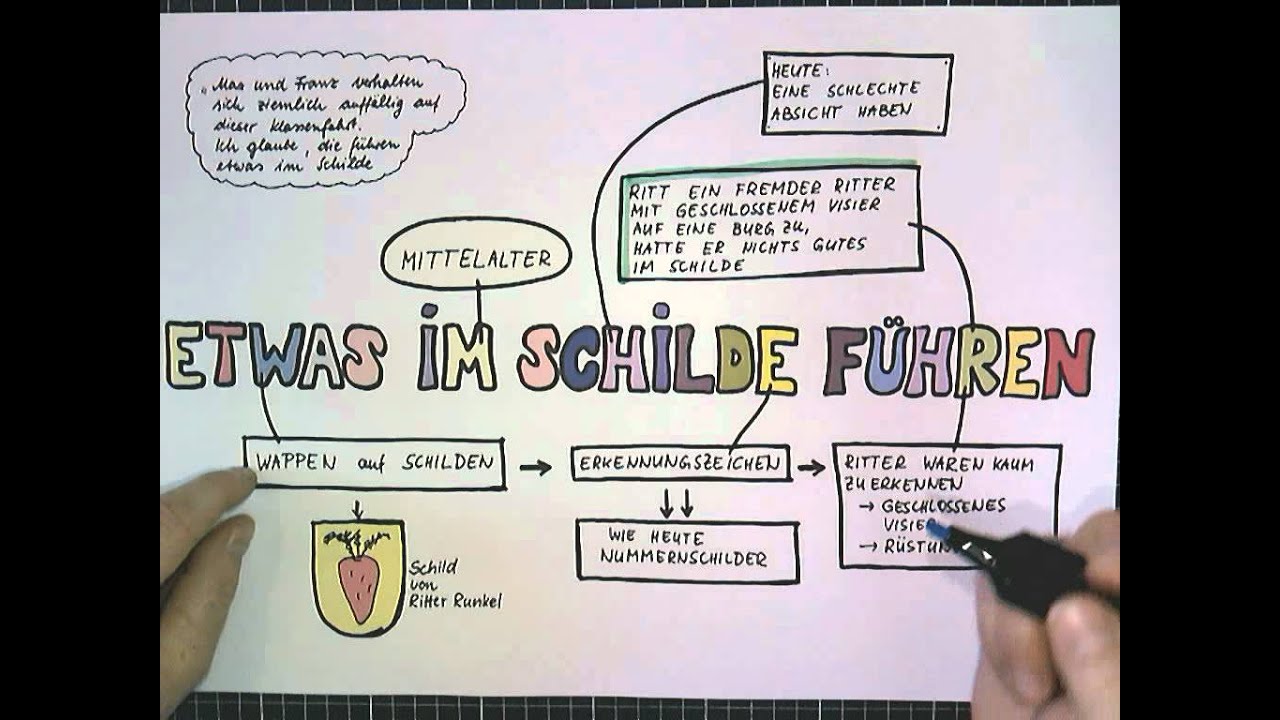 „Max und Franz verhalten
sich ziemlich auffällig auf
dieser Klassenfahrt.
Ich glaube, die führen
etwas im Schilde
HEUTE:
EINE SCHLECHTE
ABSICHT HABEN
RITT EIN FREMDER RITTER
MIT GESCHLOSSENEM VISIER
AUF EINE BURG ZU,
HATTE ER NICHTS GUTES
IM SCHILDE
MITTELALTER
ETWAS IM SCHILDE FÜHREN
WAPPEN auf SCHILDEN
→ ERKENNUNGSZEICHEN →
RITTER WAREN KAUM
ZU ERKENNEN
→ GESCHLOSSENES
VISIER
→ RÜSTUN
WIE HEUTE
NUMMERNSCHILDER
Schild
von
Ritter Runkel